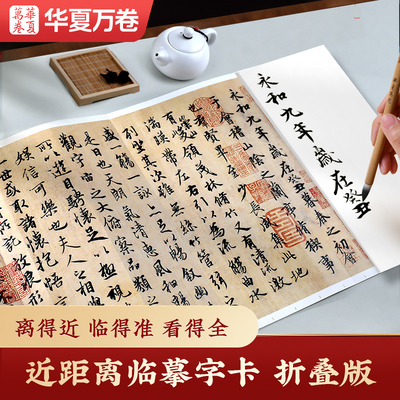 華夏萬卷
华夏万卷
永和九年歲在癸丑
永和九年歲在癸丑暮春之初會
于會稽山陰之蘭亭脩禊事
也羣賢畢至少長咸集此地
有崇山峻領茂林脩竹又有清流激
湍暎帶左右引以為流觴曲水
列坐其次雖無絲竹管弦之
盛一觴一詠亦足以暢敘幽
是日也天朗氣清惠風和暢
觀宇宙之大俯察品類
所以遊目騁懷足以極視
娛信可樂也夫人之相
世或取諸懷抱悟
所託放浪形
离得近 临得准 看得全
近距离临摹字卡 折叠版